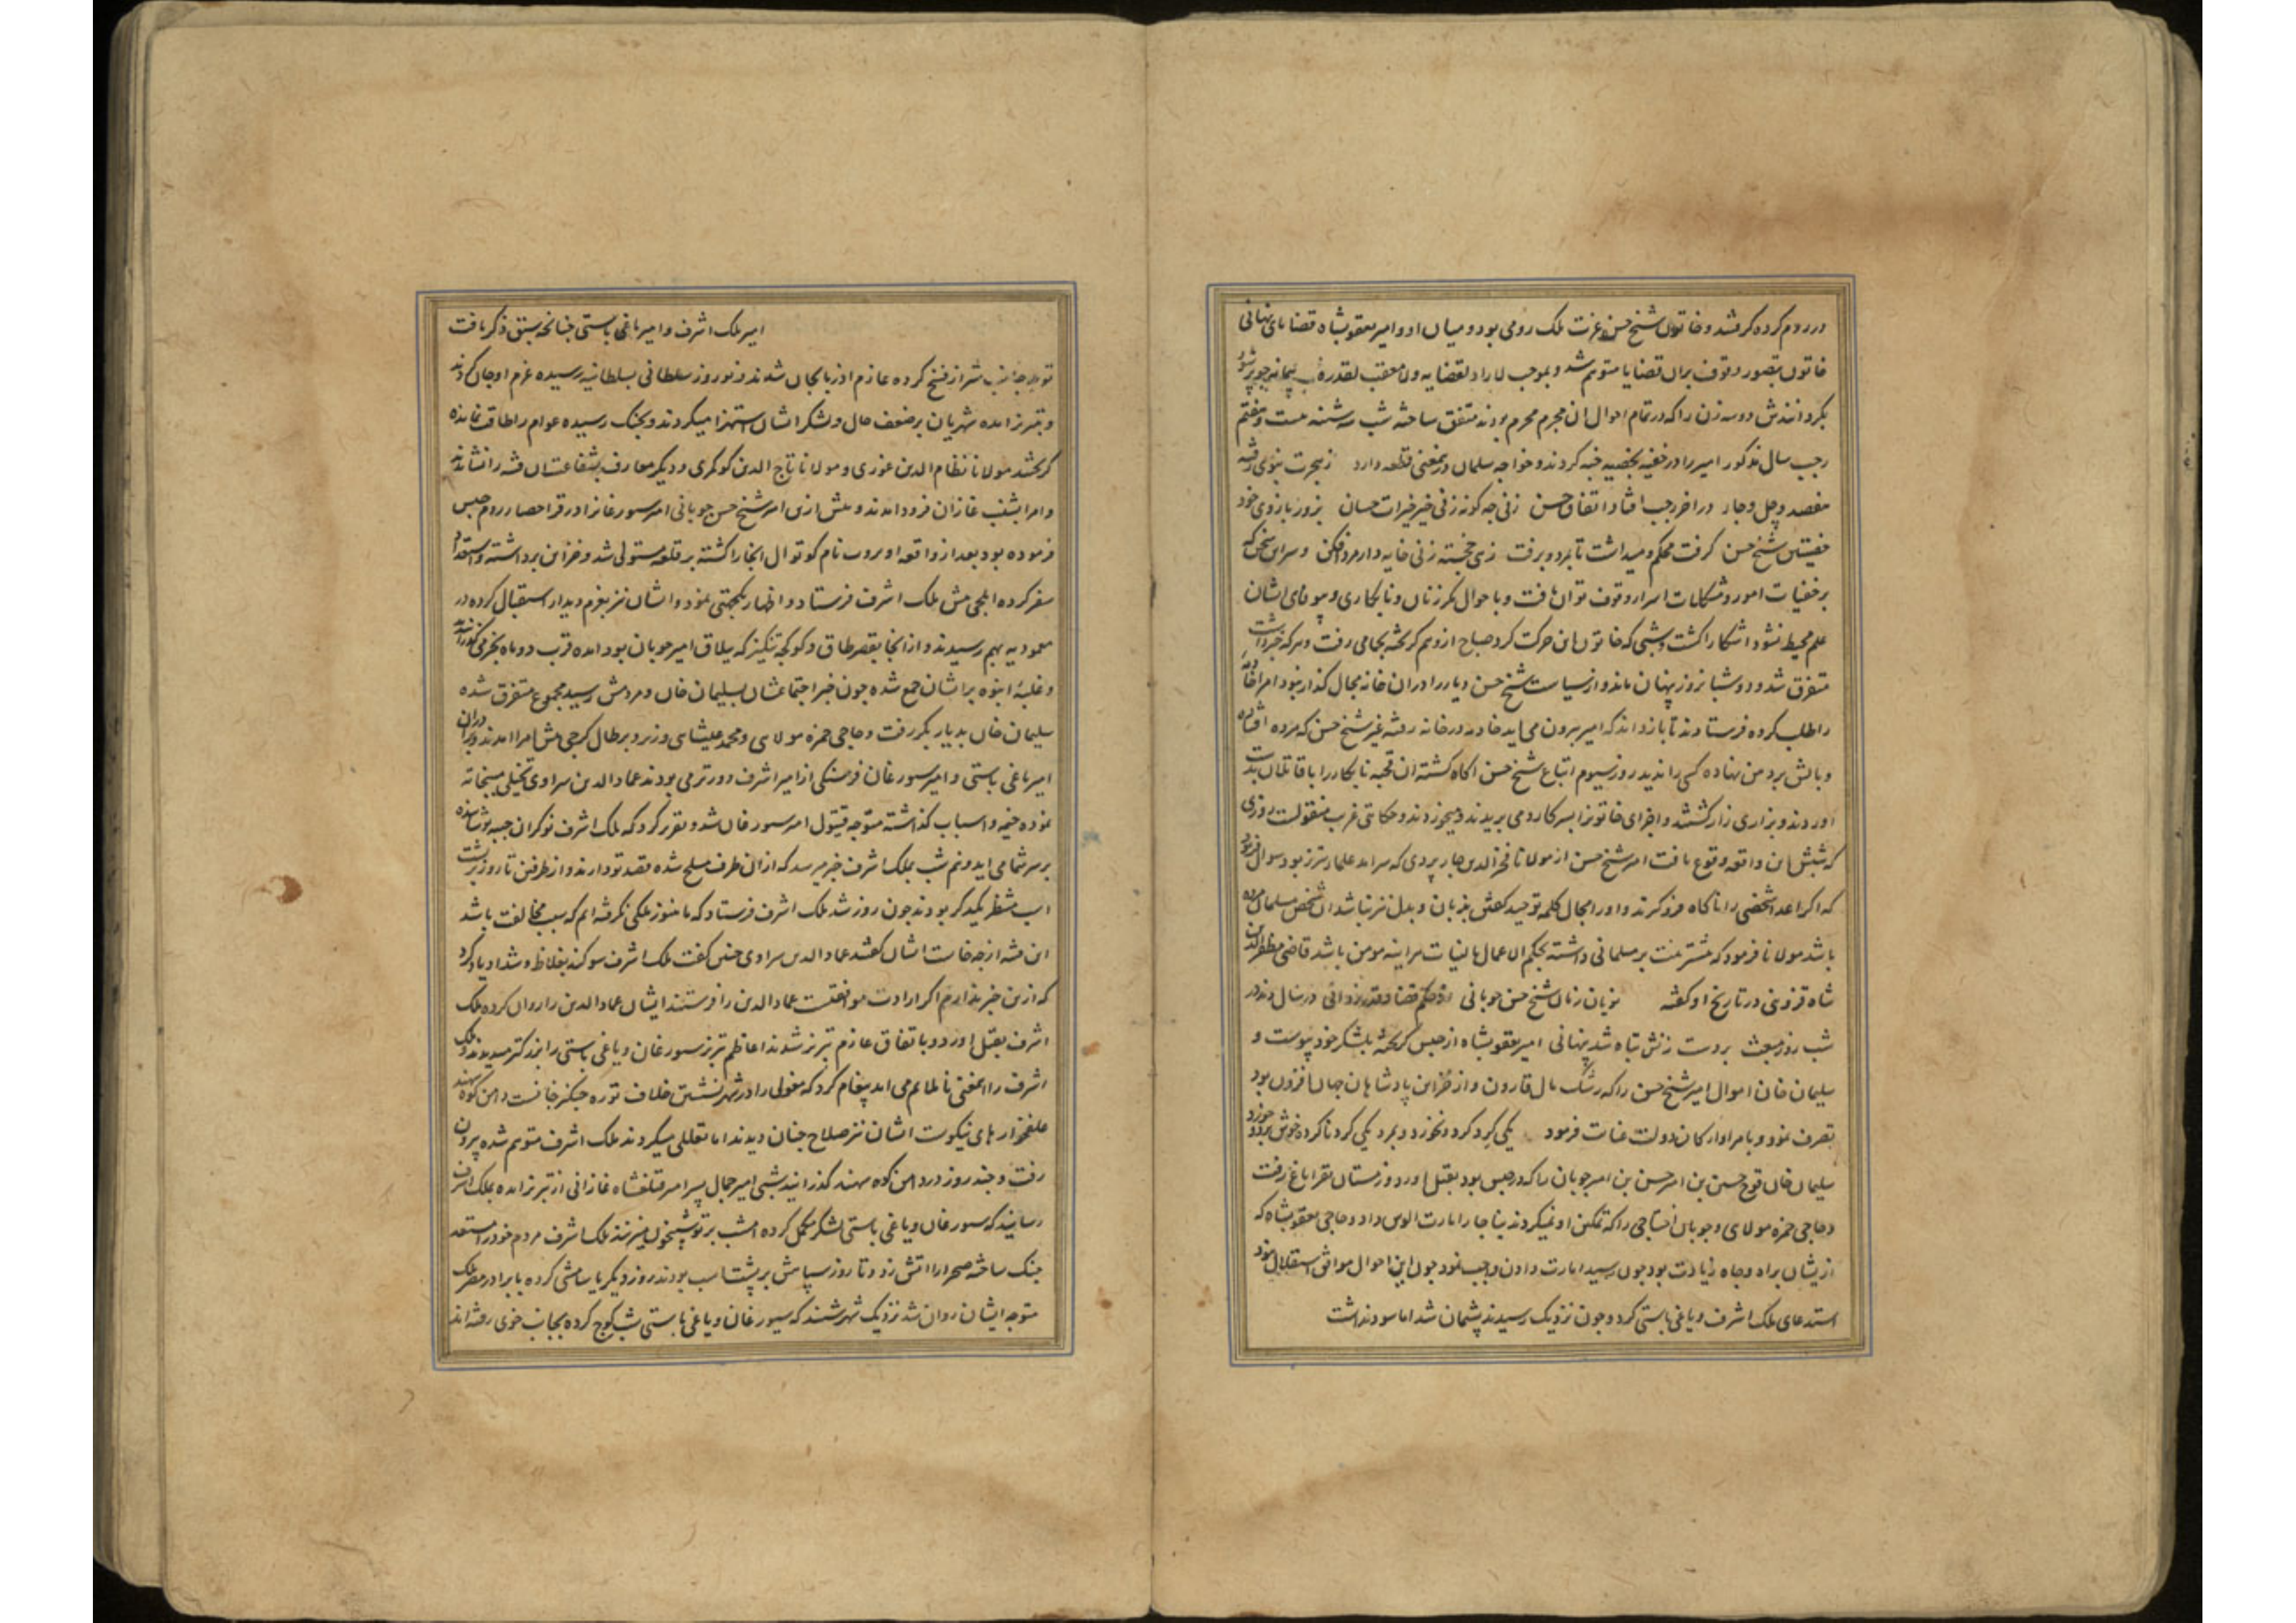 در روم کرده گرفتند و خاتون شیخ حسن عزت ملک رومی بود و میان او و امیر یعقوبشاه قضایای نهانی
خاتون بتصور وقوف بران قضایا متوهم شد و بموجب لا راد لقضایه ولا معقب لقدره
بگردانندش دو سه زن را که در تمام احوال ان مجرم محرم بودند متفق ساخته شب سه شنبه بیست و هفتم
رجب سال مذکور امیر را در خفیه بخصیه خبه کردند و خواجه سلمان درین معنی قطعه دارد ز هجرت نبوی رفته
هفصد و چل و چار در اخر رجب افتاد اتفاق حسن زنی چه گونه زنی خیر خیرات حسان بزور بازوی خود
خصیتین شیخ حسن گرفت محکم و میداشت تا بمرد و برفت زهی خجسته زنی خایه دار مرد افکن و سر این سخن که
بر خفیات امور و مشکلات اسرار وقوف توان یافت و با حوال مکر زنان و نابکاری و بیوفای ایشان
علم محیط نشود اشکارا گشت و شبی که خاتون این حرکت کرد صباح از وهم گریخته بجامی رفت و هر که خبر داشت
متفرق شد و دو شبانروز پنهان ماند و از سیاست شیخ حسن دیار را در ان خانه مجال گذار نبود امرا خاتون
را طلب کرده فرستادند تا باز داند که امیر بیرون می اید خادمه در خانه رفته غیر شیخ حسن که مرده افتاده
و بالش بر دهن نهاده کسی را ندید روز سیوم اتباع شیخ حسن اکاه گشته ان قحبه نابکار را با قاتلان بدست
اوردند و بزاری زار کشتند و اجزای خاتون را بسر کارد می بریدند و میخوردند و حکایتی غریب منقولست روزی
که شبش این واقعه وقوع یافت امیر شیخ حسن از مولانا فخر الدین جاربردی که سرامد علماء تبریز بود سوال فرمود
که اکر اعدا شخصی را ناکاه فرو گیرند و او را مجال کلمه توحید گفتن بزبان و بدل نیز نباشد ان شخص مسلمان مرده
باشد مولانا فرمود که مشتر نیت بر مسلمانی داشته بحکم الاعمال بالنیات هراینه مومن باشد قاضی مظفر الدین
شاه قزوینی در تاریخ او گفته نویان زمان شیخ حسن چوبانی از حکم قضا و قدر یزدانی در سال ذمد در
شب روز مبعث بر دست زنش تباه شد پنهانی امیر یعقوبشاه از حبس گریخته بلشکر خود پیوست و
سلیمان خان اموال امیر شیخ حسن را که رشک مال قارون و از خزاین پادشاهان جهان افزون بود
تصرف نمود و بامرا و ارکان دولت عنایت فرمود یکی گرد کرد و نخورد و بمرد یکی گرد ناکرده خوش خورد و برد
سلیمان خان قوچ حسین بن امیر حسن بن امیر چوبان را که در حبس بود بقتل اورد و زمستان بقراباغ رفت
و حاجی حمزه مولای و چوبان اختاجی را که تمکین او نمیکردند بناچار امارت الوس داد و حاجی یعقوبشاه که
ازیشان براه و جاه زیادت بود چون رسید امارت دادن واجب نمود چون این احوال موافق استقلال نبود
استدعای ملک اشرف و یاغی باستی کرد و چون نزدیک رسیدند پشیمان شد اما سود نداشت
امیر ملک اشرف و امیر یاغی باستی چنانکه سبق ذکر یافت
توجه جانب شیراز فسخ کرده عازم اذربایجان شدند و نوروز سلطانی بسلطانیه رسیده عزم اوجان کردند
و بتبریز امده شهریان بر ضعف حال و لشکر ایشان استهزا میکردند و بجنک رسیده عوام را طاقت نمانده
گریختند مولانا نظام الدین غوری و مولانا تاج الدین کوکری و دیکر معارف بشفاعت ان فتنه را نشاندند
و امرا بشنب غازان فرود امدند و پیش ازین امیر شیخ حسن چوبانی امیر سیورغان را در قراحصار روم حبس
فرموده بود بعد از واقعه او بروب نام کوتوال انجا را کشته بر قلعه مستولی شد و خزاین برداشته و استعداد
سفر کرده ایلچی پیش ملک اشرف فرستاد و اظهار یکجهتی نمود و ایشان نیز بعزم دیدار استقبال کرده در
معمودیه بهم رسیدند و از انجا بقصر طاق و کوکچه تنکیز که ییلاق امیر چوبان بود امده قرب دو ماه بخرمی گذرانیدند
و غلبه انبوه بر ایشان جمع شده چون خبر اجتماعشان بسلیمان خان و مردمش رسید مجموع متفرق شده
سلیمان خان بدیار بکر رفت و حاجی حمزه مولای و محمد علیشای وزیر و برطال کرجی پیش امرا امدند و دران
امیر یاغی باستی و امیر سیورغان فرسنکی از امیر اشرف دورتر می بودند عماد الدین سراوی تخیلی سبخانه
نموده خیمه و اسباب گذاشته متوجه قیتول امیر سیورغان شد و تقریر کرد که ملک اشرف نوکران جیبه پوشانیده
بر سر شما می اید و نیم شب بملک اشرف خبر میرسد که از ان طرف مسلح شده قصد تو دارند و از طرفین تا روز بر پشت
اسب منتظر یکدیکر بودند چون روز شد ملک اشرف فرستاد که ما هنوز ملکی نگرفته ایم که سبب مخالفت باشد
این فتنه از چه خاست ایشان گفتند عماد الدین سراوی چنین گفت ملک اشرف سوکند بغلاظ و شداد یاد کرد
که ازین خبر ندارم اکر ارادت موافقتست عماد الدین را فرستند ایشان عماد الدین را روان کرده ملک
اشرف بقتل اورد و باتفاق عازم تبریز شدند اعاظم تبریز سیورغان و یاغی باستی را بزرکتر میدیدند و ملک
اشرف را این معنی ناملایم می امد پیغام کرد که مغولی را در شهر نشستن خلاف توره چنکیز خانست دامن کوه سهند
علفخوارهای نیکوست ایشان نیز صلاح چنان دیدند اما تعللی میکردند ملک اشرف متوهم شده بیرون
رفت و چند روز در دامن کوه سهند گذرانید شبی امیر جمال پسر امیر قتلغشاه غازانی از تبریز امده بملک اشرف
رسانید که سیورغان و یاغی باستی لشکر مکمل کرده امشب بر تو شبیخون میزنند ملک اشرف مردم خود را مستعد
جنک ساخته صحرا را اتش زد و تا روز سپاهش بر پشت اسب بودند روز دیکر یاسامشی کرده با برادر مصر ملک
متوجه ایشان روان شد نزدیک شهر شنید که سیورغان و یاغی باستی شب کوچ کرده بجانب خوی رفته اند